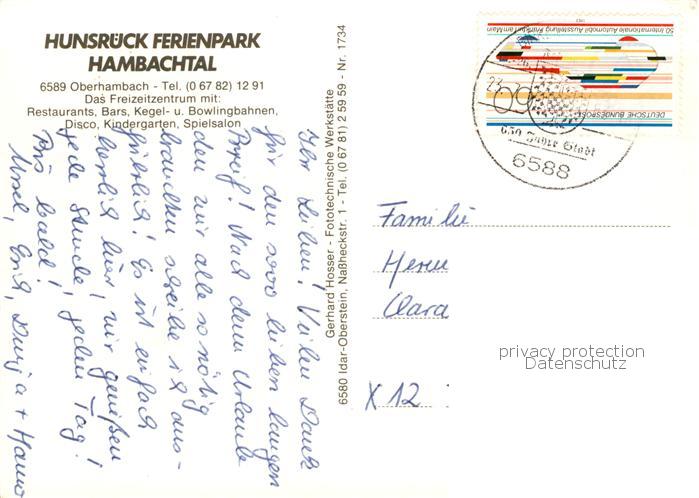 HUNSRÜCK FERIENPARK
HAMBACHTAL
6589 Oberhambach - Tel. (0 67 82) 12 91
Das Freizeitzentrum mit:
Restaurants, Bars, Kegel- u. Bowlingbahnen,
Disco, Kindergarten, Spielsalon
Ihr Lieben! Vielen Dank
für den sooo lieben langen
Brief! Nach dem Urlaub
den wir alle so nötig
brauchten schreibe ich aus-
führlich! Es ist einfach
herrlich hier, wir genießen
jede Stunde, jeden Tag!
Bis bald!
Ursel, Erich, + Hanno
Gerhard Hosser - Fototechnische Werkstätte
6580 Idar-Oberstein, Naßheckstr. 1 - Tel. (0 67 81) 2 59 59 - Nr. 1734
50. Internationale Automobil Ausstellung Frankfurt am Main
DEUTSCHE BUNDESPOST
650 Jahre Stadt
6588
Familie
Herrn
Clara
X 12
privacy protection
Datenschutz